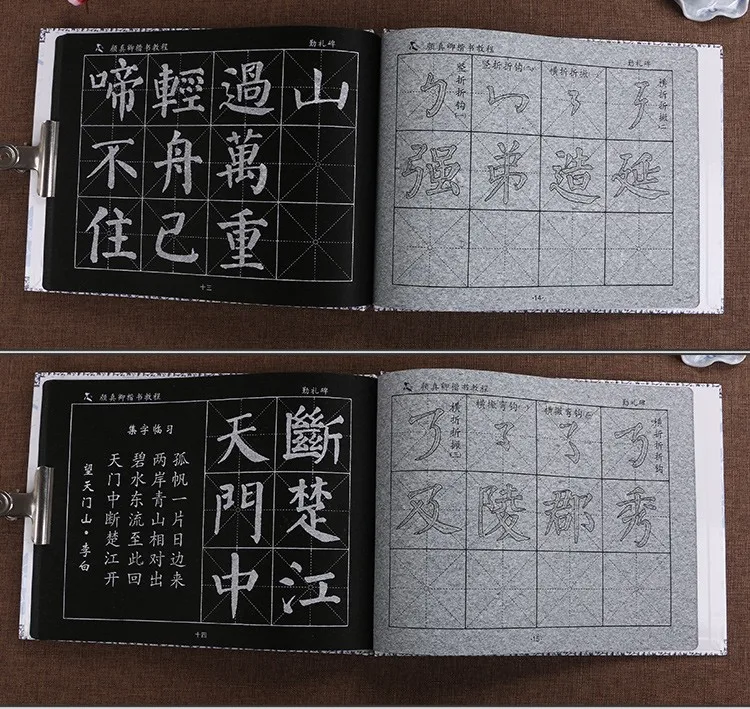 颜真卿楷书教程 勤礼碑
啼不住
輕舟已
過萬重
山
十三
颜真卿楷书教程 勤礼碑
竖折折钩(一)
竖折折钩(二)
横折折撇(一)
横折折撇(二)
强 弟 造 延
-14-
颜真卿楷书教程 勤礼碑
集字临习
望天门山·李白
天门中断楚江开
碧水东流至此回
两岸青山相对出
孤帆一片日边来
天門中
斷楚江
十四
颜真卿楷书教程 勤礼碑
横折折撇(三)
横撇弯钩(一)
横撇弯钩(二)
横折折折钩
及 陵 郡 秀
-15-